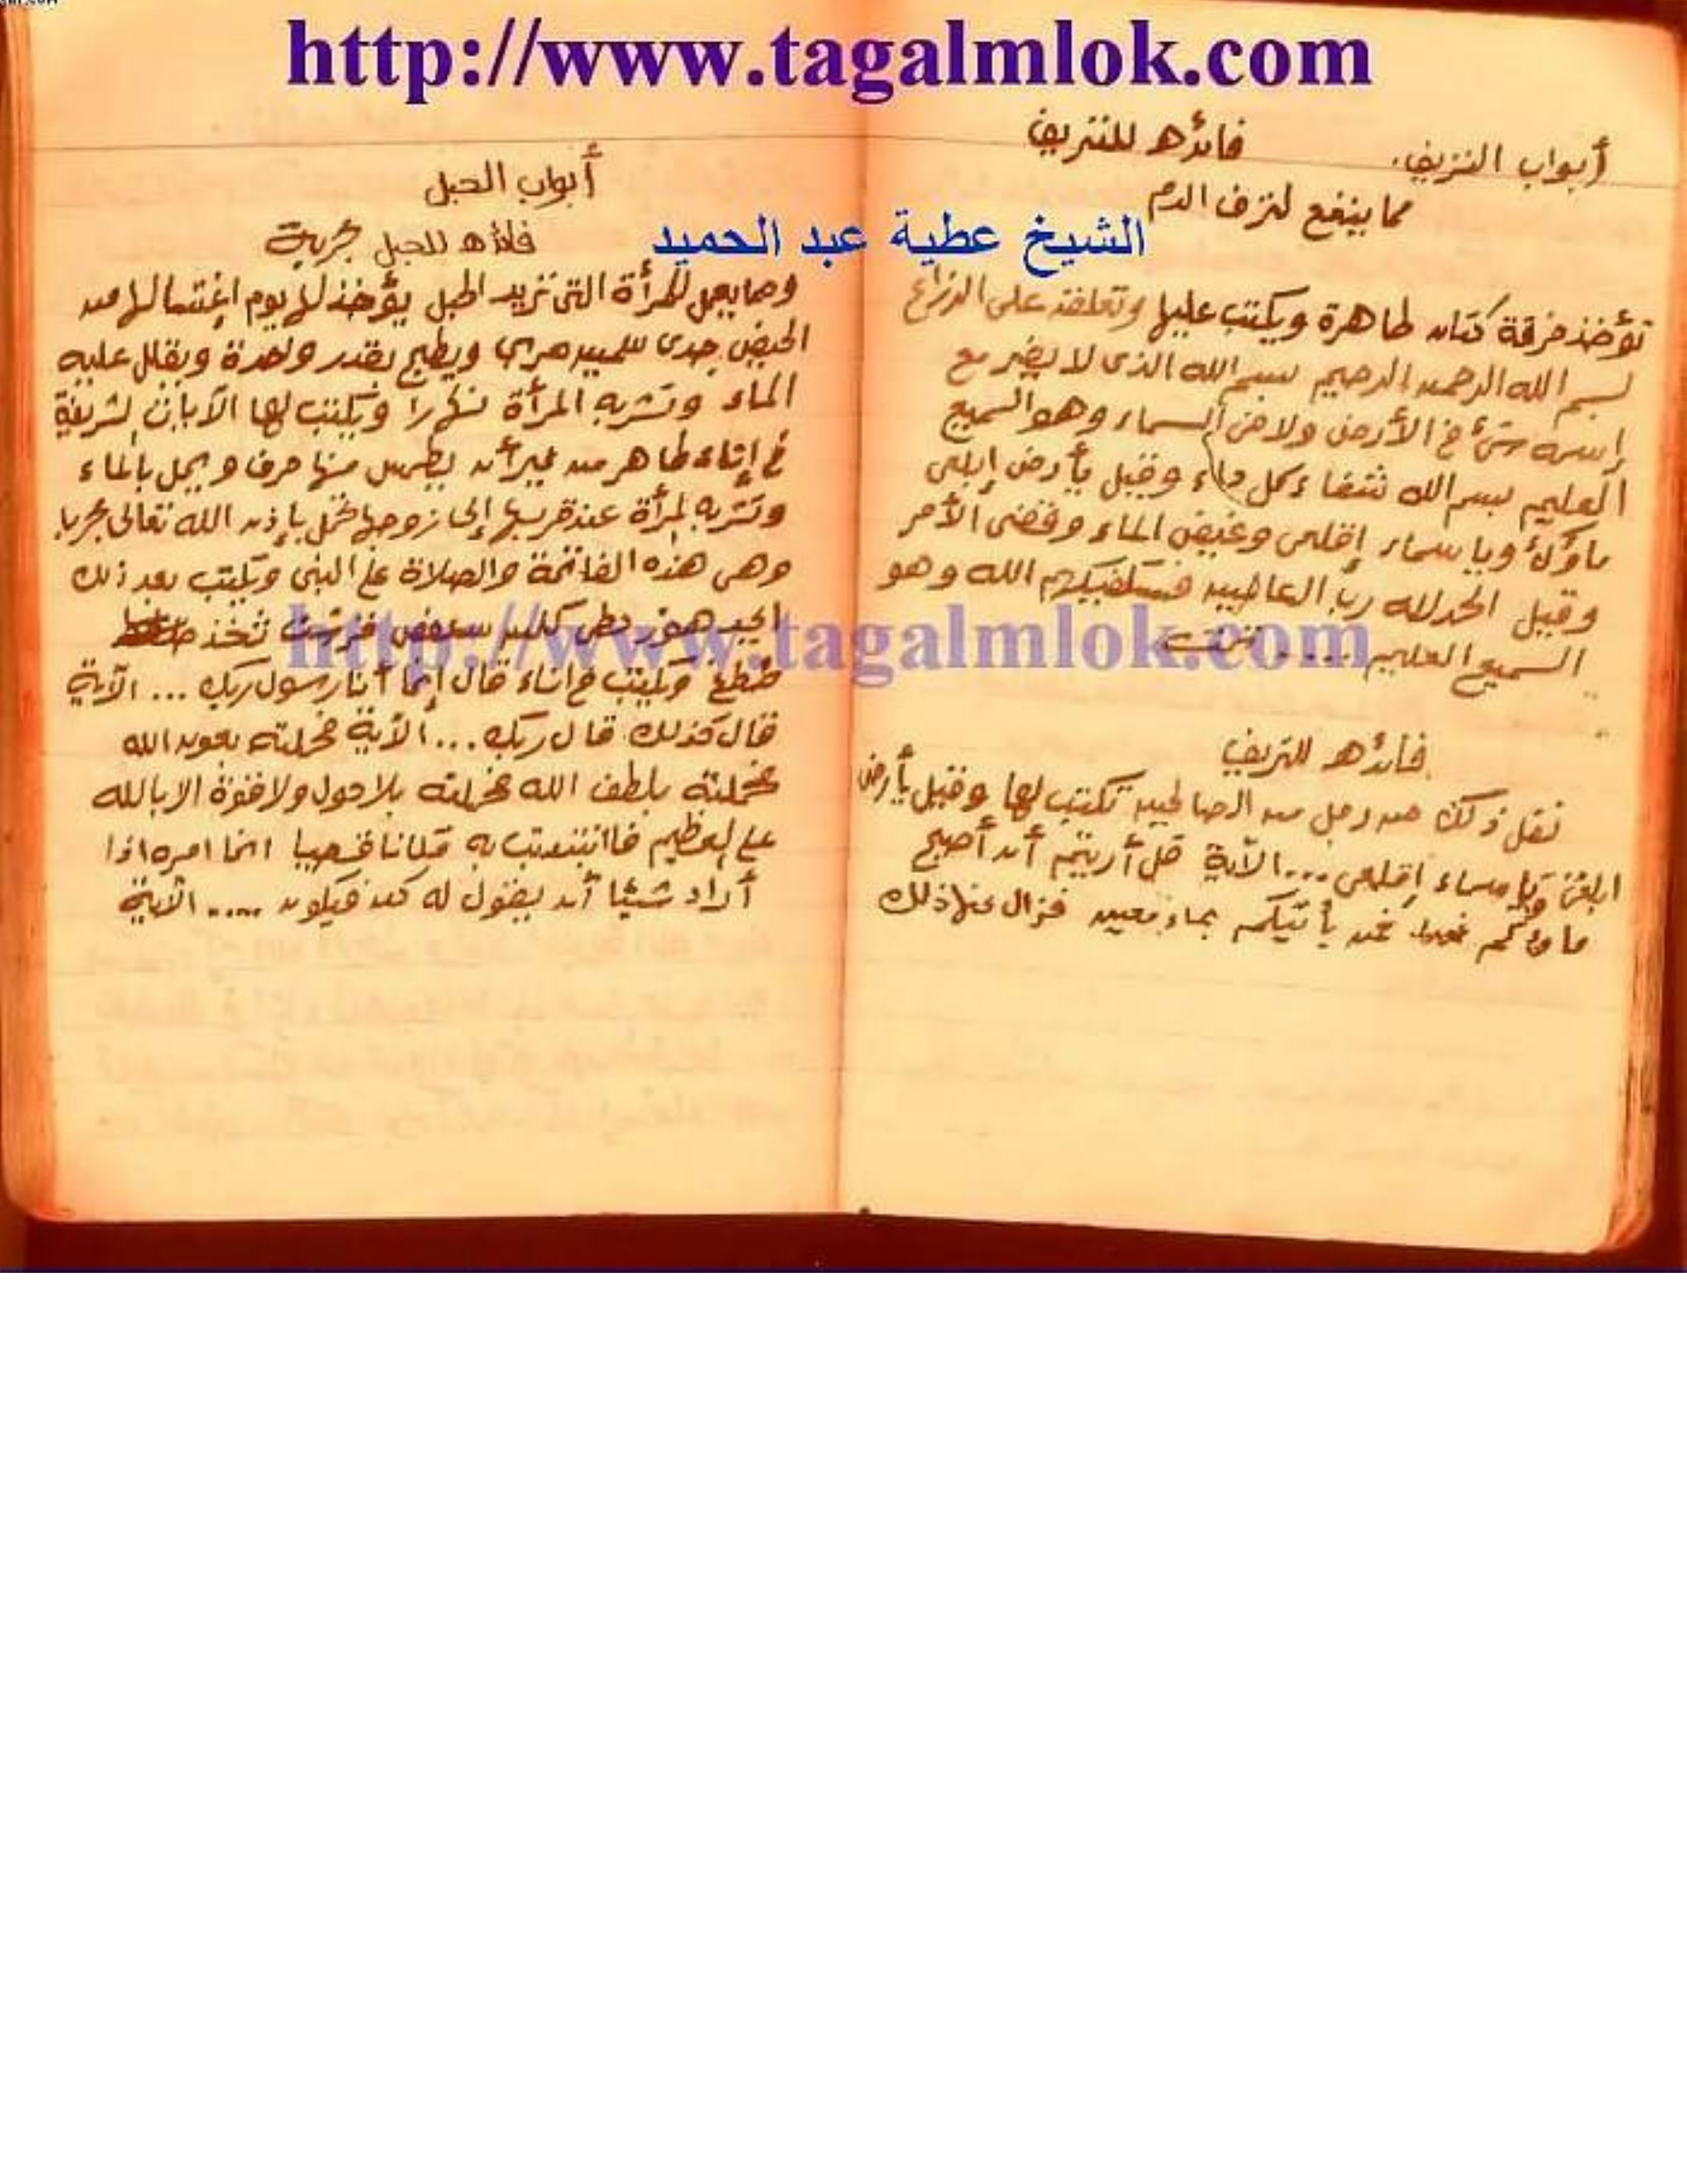 http://www.tagalmlok.com
الشيخ عطية عبد الحميد
أبواب النزيف. فائده للنزيف
مما ينفع لنزف الدم
تؤخذ خرقة كتان طاهرة ويكتب عليها وتعلقه على الذراع
بسم الله الرحمن الرحيم بسم الله الذى لا يضر مع
إسمه شئ فى الأرض ولا فى السماء وهو السميع
العليم بسم الله شفاء كل داء وقيل يأرض إبلعى
ماؤك ويا سماء إقلعى وغيض الماء وقضى الأمر
وقيل الحمد لله رب العالمين فسيكفيكهم الله وهو
السميع العليم ..... تمت
فائده للنزيف
نقل ذلك عن رجل من الصالحين تكتب لها وقيل يأرض
ابلعى ويا سماء إقلعى ... الآية قل أريتم أن أصبح
ماؤكم غورا فمن يأتيكم بماء معين فزال عنها ذلك
أبواب الحبل
فائده للحبل مجربة
ومما يعمل للمرأة التى تريد الحبل يؤخذ لها يوم إغتسالها من
الحيض جدى ويطبخ بقدر واحدة ويقلل عليه
الماء وتشربه المرأة ويكتب لها الآيات الشريفة
فى إناء طاهر من غير أن يطمس منها حرف ويحل بالماء
وتشربه المرأة عند قربها إلى زوجها تحمل بإذن الله تعالى مجربا
وهى هذه الفاتحة والصلاة على النبى ويكتب بعد ذلك
ابجد هوز حطى كلمن سعفص قرشت ثخذ
ضظغ ويكتب فى اناء قال إنما أنا رسول ربك ... الآية
قال كذلك قال ربك ... الآية فحملته بعون الله
فحملته بلطف الله فحملته بلا حول ولا قوة الا بالله
على العظيم فاانتبذت به مكانا قصيا انما امره اذا
أراد شيئا أن يقول له كن فيكون ..... الآية
http://www.tagalmlok.com